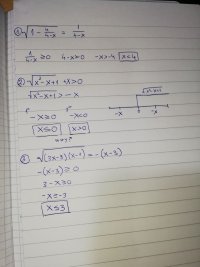 ① √(1 - 4/(4-x)) = 1/(4-x)
1/(4-x) ≥ 0   4-x>0   -x>-4   x<4
② √(x²-x+1) + x > 0
√(x²-x+1) > -x
-x ≥ 0   -x < 0
x ≤ 0   x > 0
-x   -x
√(x²-x+1)
-(x-3) ≥ 0
3-x ≥ 0
-x ≥ -3
x ≤ 3